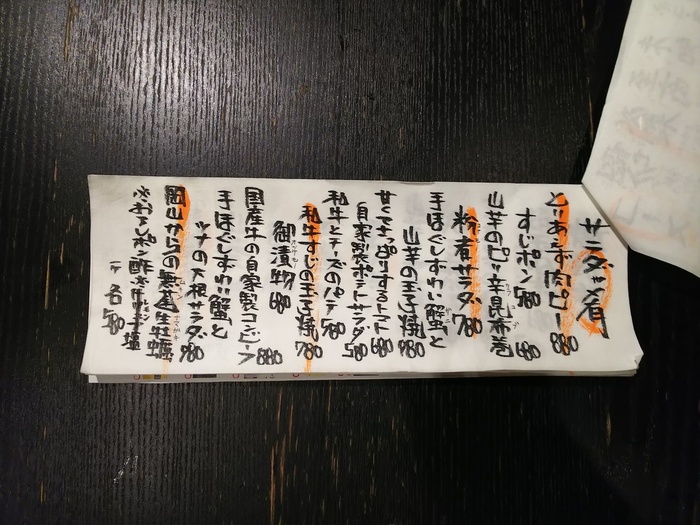 サラダと肴
とりあえず肉ピー 880
すじポン 580
山芋のピリ辛昆布巻 680
粉者サラダ 780
手ほぐしずわい蟹と
山芋の玉子焼 980
甘くてさっぱりするトマト 680
自家製ポテトサラダ 580
和牛とチーズのパテ 580
和牛すじの玉子焼 780
御漬物 680
国産牛の自家製コンビーフ 880
手ほぐしずわい蟹と
ツナの大根サラダ 980
岡山からの無菌生牡蠣
※おろしポン酢
各 580